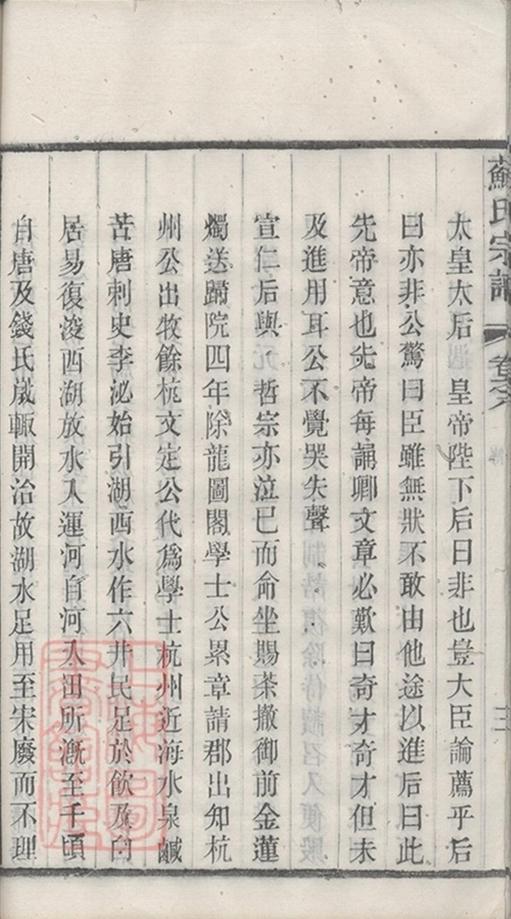 蘇氏宗譜
卷六
三
太皇太后 皇帝陛下后曰非也豈大臣論薦乎后
曰亦非公驚曰臣雖無狀不敢由他途以進后曰此
先帝意也先帝每誦卿文章必歎曰奇才奇才但未
及進用耳公不覺哭失聲
宣仁后與 哲宗亦泣已而命坐賜茶撤御前金蓮
燭送歸院四年除龍圖閣學士公累章請郡出知杭
州公出牧餘杭文定公代爲學士杭州近海水泉鹹
苦唐刺史李泌始引湖西水作六井民足於飲及白
居易復浚西湖放水入運河自河入田所漑至千頃
自唐及錢氏嵗輒開治故湖水足用至宋廢而不理